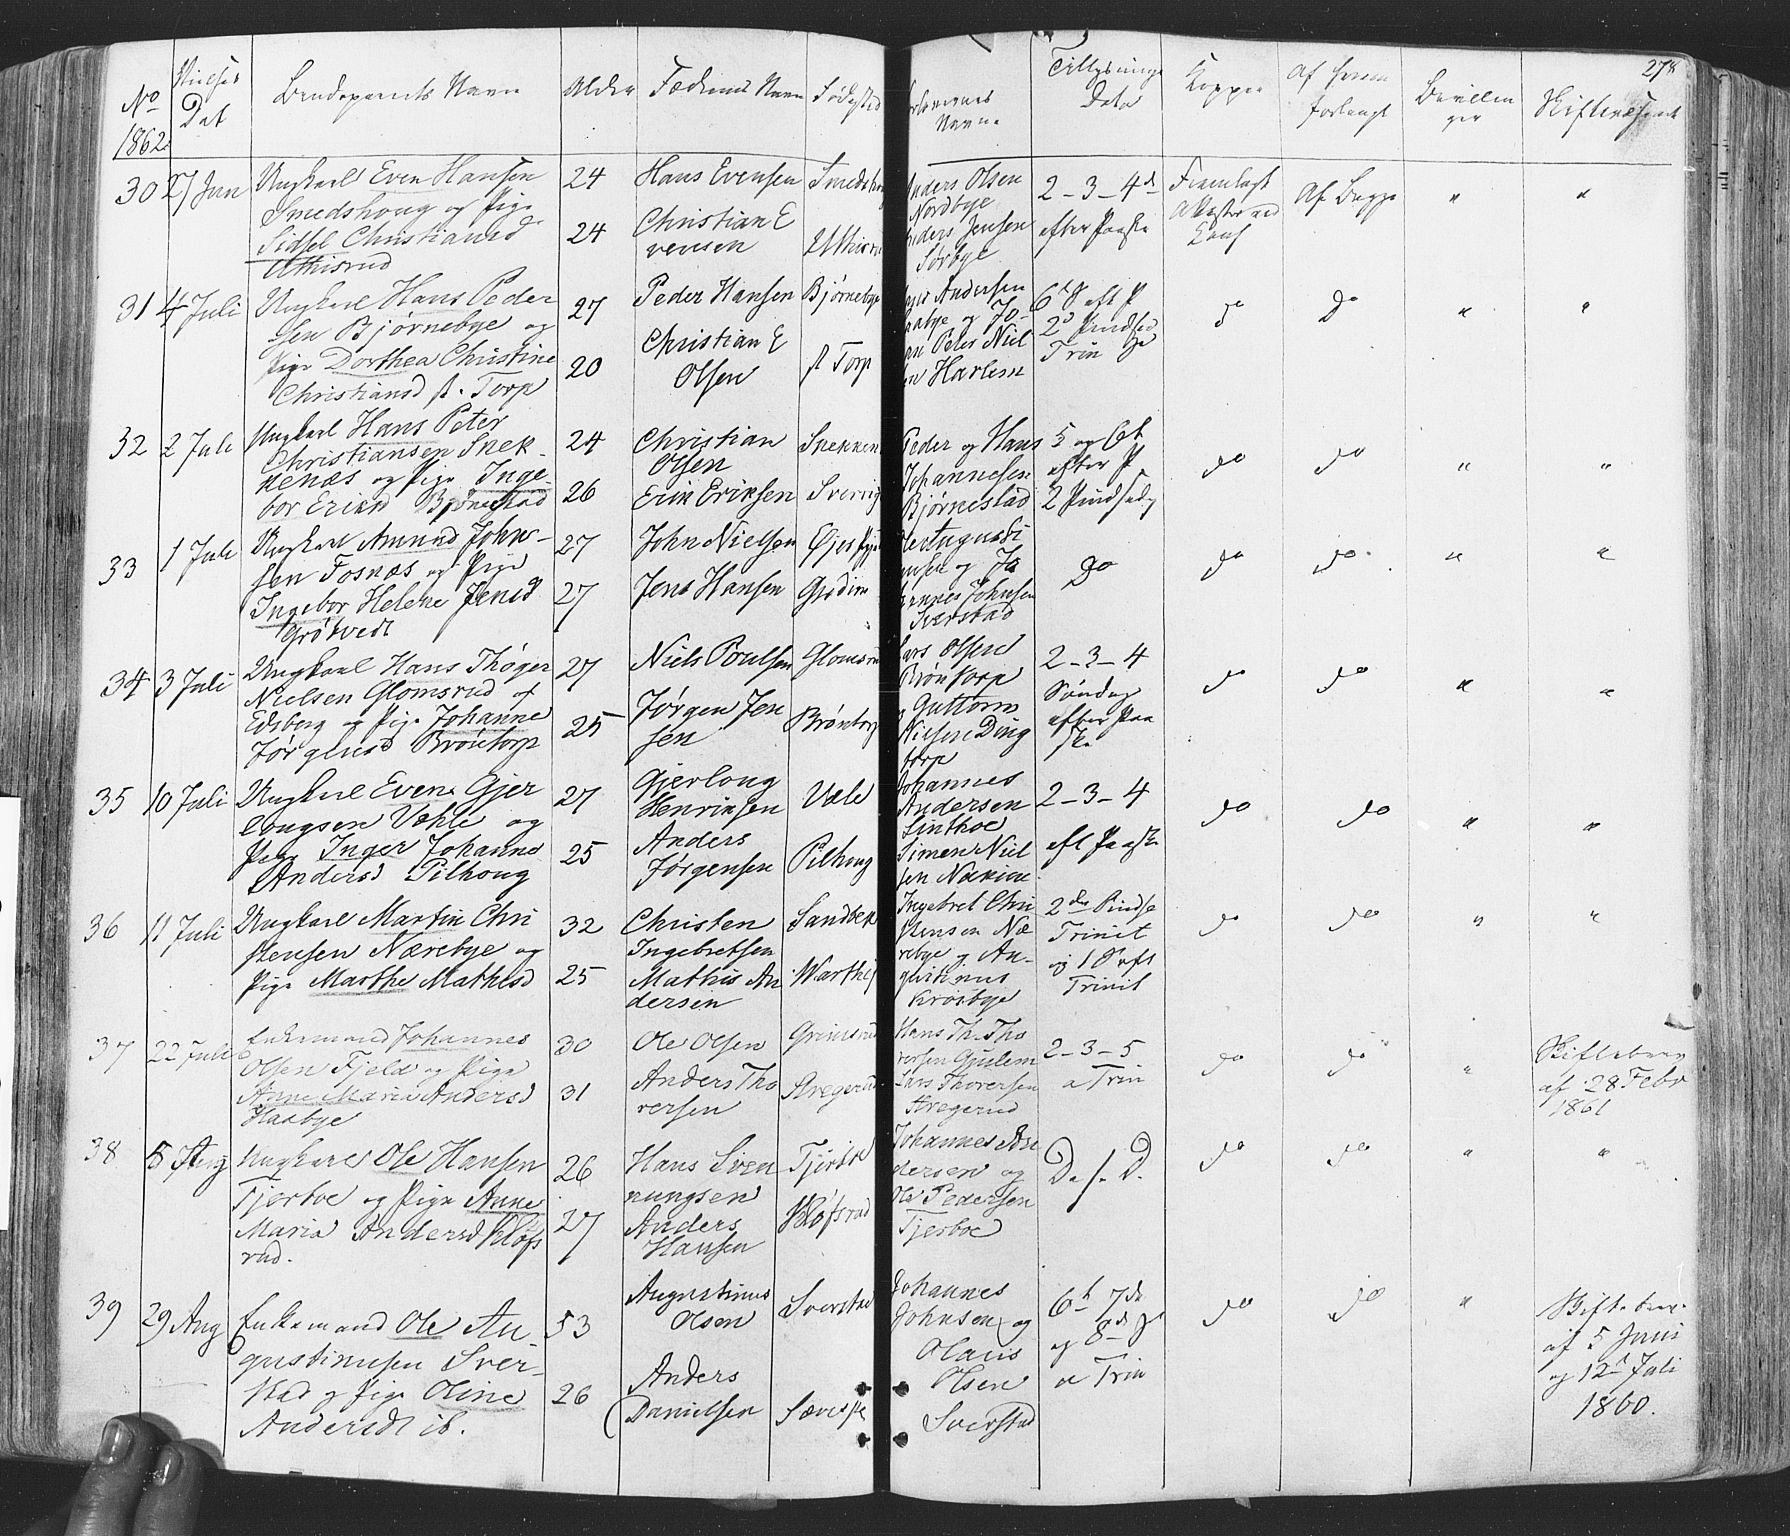 No
1862
Vielses
Dat
Brudeparrets Navn
Alder
Fædrenes Navn
Fødested
Forlovernes
Navne
Tillysnings
Dato
Kopper
Af hvem
forlangt
Bevillin
ger
Skiftevæsenet
278
30 27 Jun
Ungkarl Even Hansen
Smedshoug og Pige
Sidsel Christiansd
Uthisrud
24
24
Hans Evensen
Christian E
vensen
Smedshoug
Uthisru
Anders Olsen
Nordbye
Anders Jensen
Sørbye
2 - 3 - 4de
efter Paaske
Fremlagt
Attester ved
Conf
Af Begge
"
"
31 4 Juli
Ungkarl Hans Peder
sen Bjørnebye og
Pige Dorthea Christine
Christiansd fr. Torp
27
20
Peder Hansen
Christian E
Olsen
Bjørnebye
fr Torp
Andersen
aabye og Jo-
an Peter Niel
sen Harlem
6te S eft P
2d Pindsed
Trin
do
Do
"
"
32 2 Juli
Ungkarl Hans Peter
Christiansen Snek-
kenæs og Pige Inge-
bor Eriksd Bjørnestad
24
26
Christian
Olsen
Erik Eriksen
Snekken
Sverrig
Peder og Hans
Johannesen
Bjørnestad
5 og 6t
efter P
2 Pindsedag
do
do
"
"
33 1 Juli
Ungkarl Amund John-
sen Fosnæs og Pige
Ingebor Helene Jensd
Grøtvedt
27
27
John Nielsen
Jens Hansen
ansen og Jo
hannes Johnsen
Sverstad
Do
do
do
"
"
34 3 Juli
Ungkarl Hans Thøger
Nielsen Glomsrud af
Edsberg og Pige Johanne
Jørgensd Brøntorp
27
25
Niels Poulsen
Jørgen Jen
sen
Glomsru
Brøntorp
Lars Olsen
Brøntorp
Guttorm
Nielsen Ding
torp
2 - 3 - 4
Søndag
efter Paa
ske
do
do
"
"
35 10 Juli
Ungkarl Even Gjer
lougsen Vahle og
Pige Inger Johanne
Andersd Pilhoug
27
25
Gjerloug
Henriksen
Anders
Jørgensen
Vale
Pilhoug
Johannes
Andersen
Linthoe
Simen Niel
sen Nækim
2 - 3 - 4
eft Paaske
do
do
"
"
36 11 Juli
Ungkarl Martin Chri
stensen Nærebye og
Pige Marthe Mathisd
32
25
Christen
Ingebretsen
Mathis An
dersen
Sandbek
Ingebret Chri
stensen Næ
rebye og Au-
gustinus
Krosbye
2den Pindse
Trinit
og 1 S eft
Trinit
do
do
"
"
37 22 Juli
Enkemand Johannes
Olsen Fjeld og Pige
Anne Maria Andersd
Haabye
30
31
Ole Olsen
Anders Tho
rersen
Grimsrud
Aregerud
Hans Th. Tho
rersen Gjulem
Lars Thorersen
Aregerud
2 - 3 - 5
a Trin
do
do
"
Skiftebrev
af 28 Febr
1861
38 8 Aug
Ungkarl Ole Hansen
Tjerboe og Pige Anne
Maria Andersd Kløfs
rud.
26
27
Hans Sven
nungsen
Anders
Hansen
Tjerboe
Kløfsrud
Johannes An
dersen og
Ole Pedersen
Tjerboe
D. s. D.
do
do
"
"
39 29 Aug
Enkemand Ole Au-
gustinusen Sver-
stad og Pige Oline
Andersdt ib.
53
26
Augustinus
Olsen
Anders
Danielsen
Sverstad
Johannes
Johnsen og
Olaus
Olsen
Sverstad
6t 7de
og 8de
a Trin
do
do
"
Skiftebrev
af 5 Juni
og 12t Juli
1860.